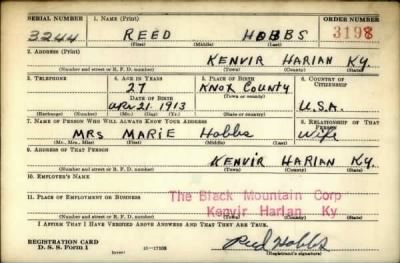 SERIAL NUMBER 1. NAME (Print) ORDER NUMBER
3244 REED HOBBS 3198
(First) (Middle) (Last)
2. ADDRESS (Print)
KENVIR HARLAN KY.
(Number and street or R. F. D. number) (Town) (County) (State)
3. TELEPHONE 4. AGE IN YEARS 5. PLACE OF BIRTH 6. COUNTRY OF CITIZENSHIP
27 KNOX COUNTY
DATE OF BIRTH (Town or county)
APR 21. 1913 U.S.A.
(Exchange) (Number) (Mo.) (Day) (Yr.) (State or country)
7. NAME OF PERSON WHO WILL ALWAYS KNOW YOUR ADDRESS 8. RELATIONSHIP OF THAT PERSON
MRS MARIE Hobbs Wife
(Mr., Mrs., Miss) (First) (Middle) (Last)
9. ADDRESS OF THAT PERSON
KENVIR HARLAN KY.
(Number and street or R. F. D. number) (Town) (County) (State)
10. EMPLOYER'S NAME
The Black Mountain Corp
11. PLACE OF EMPLOYMENT OR BUSINESS
Kenvir Harlan Ky
(Number and street or R. F. D. number) (Town) (County) (State)
I AFFIRM THAT I HAVE VERIFIED ABOVE ANSWERS AND THAT THEY ARE TRUE.
REGISTRATION CARD
D. S. S. Form 1 (over) Reed Hobbs
(Registrant's signature)